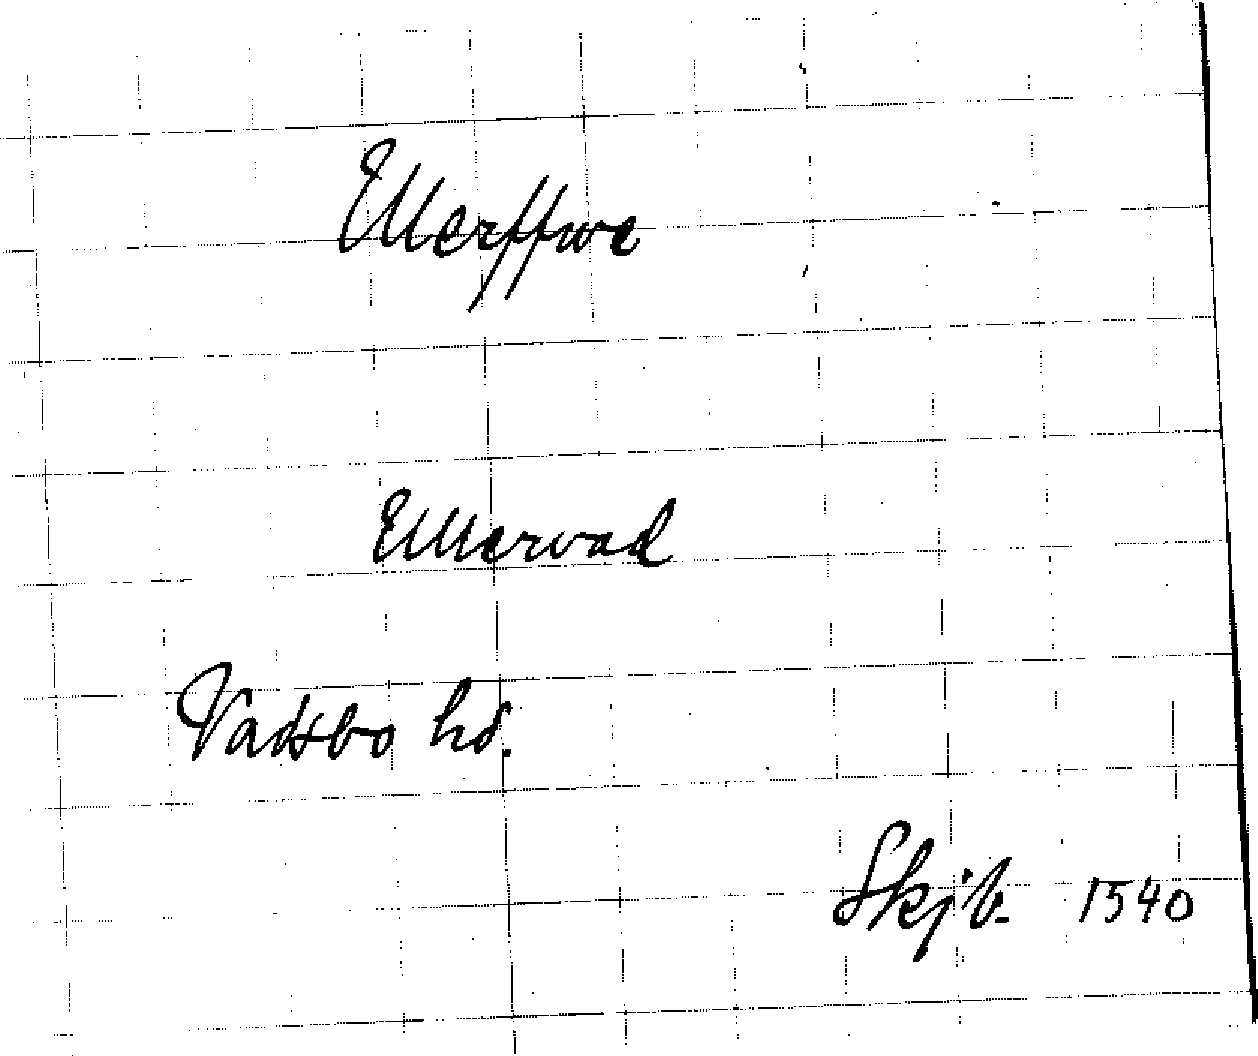 Ellerffwe
Ellervad
Vadsbo hd.
Skjb. 1540